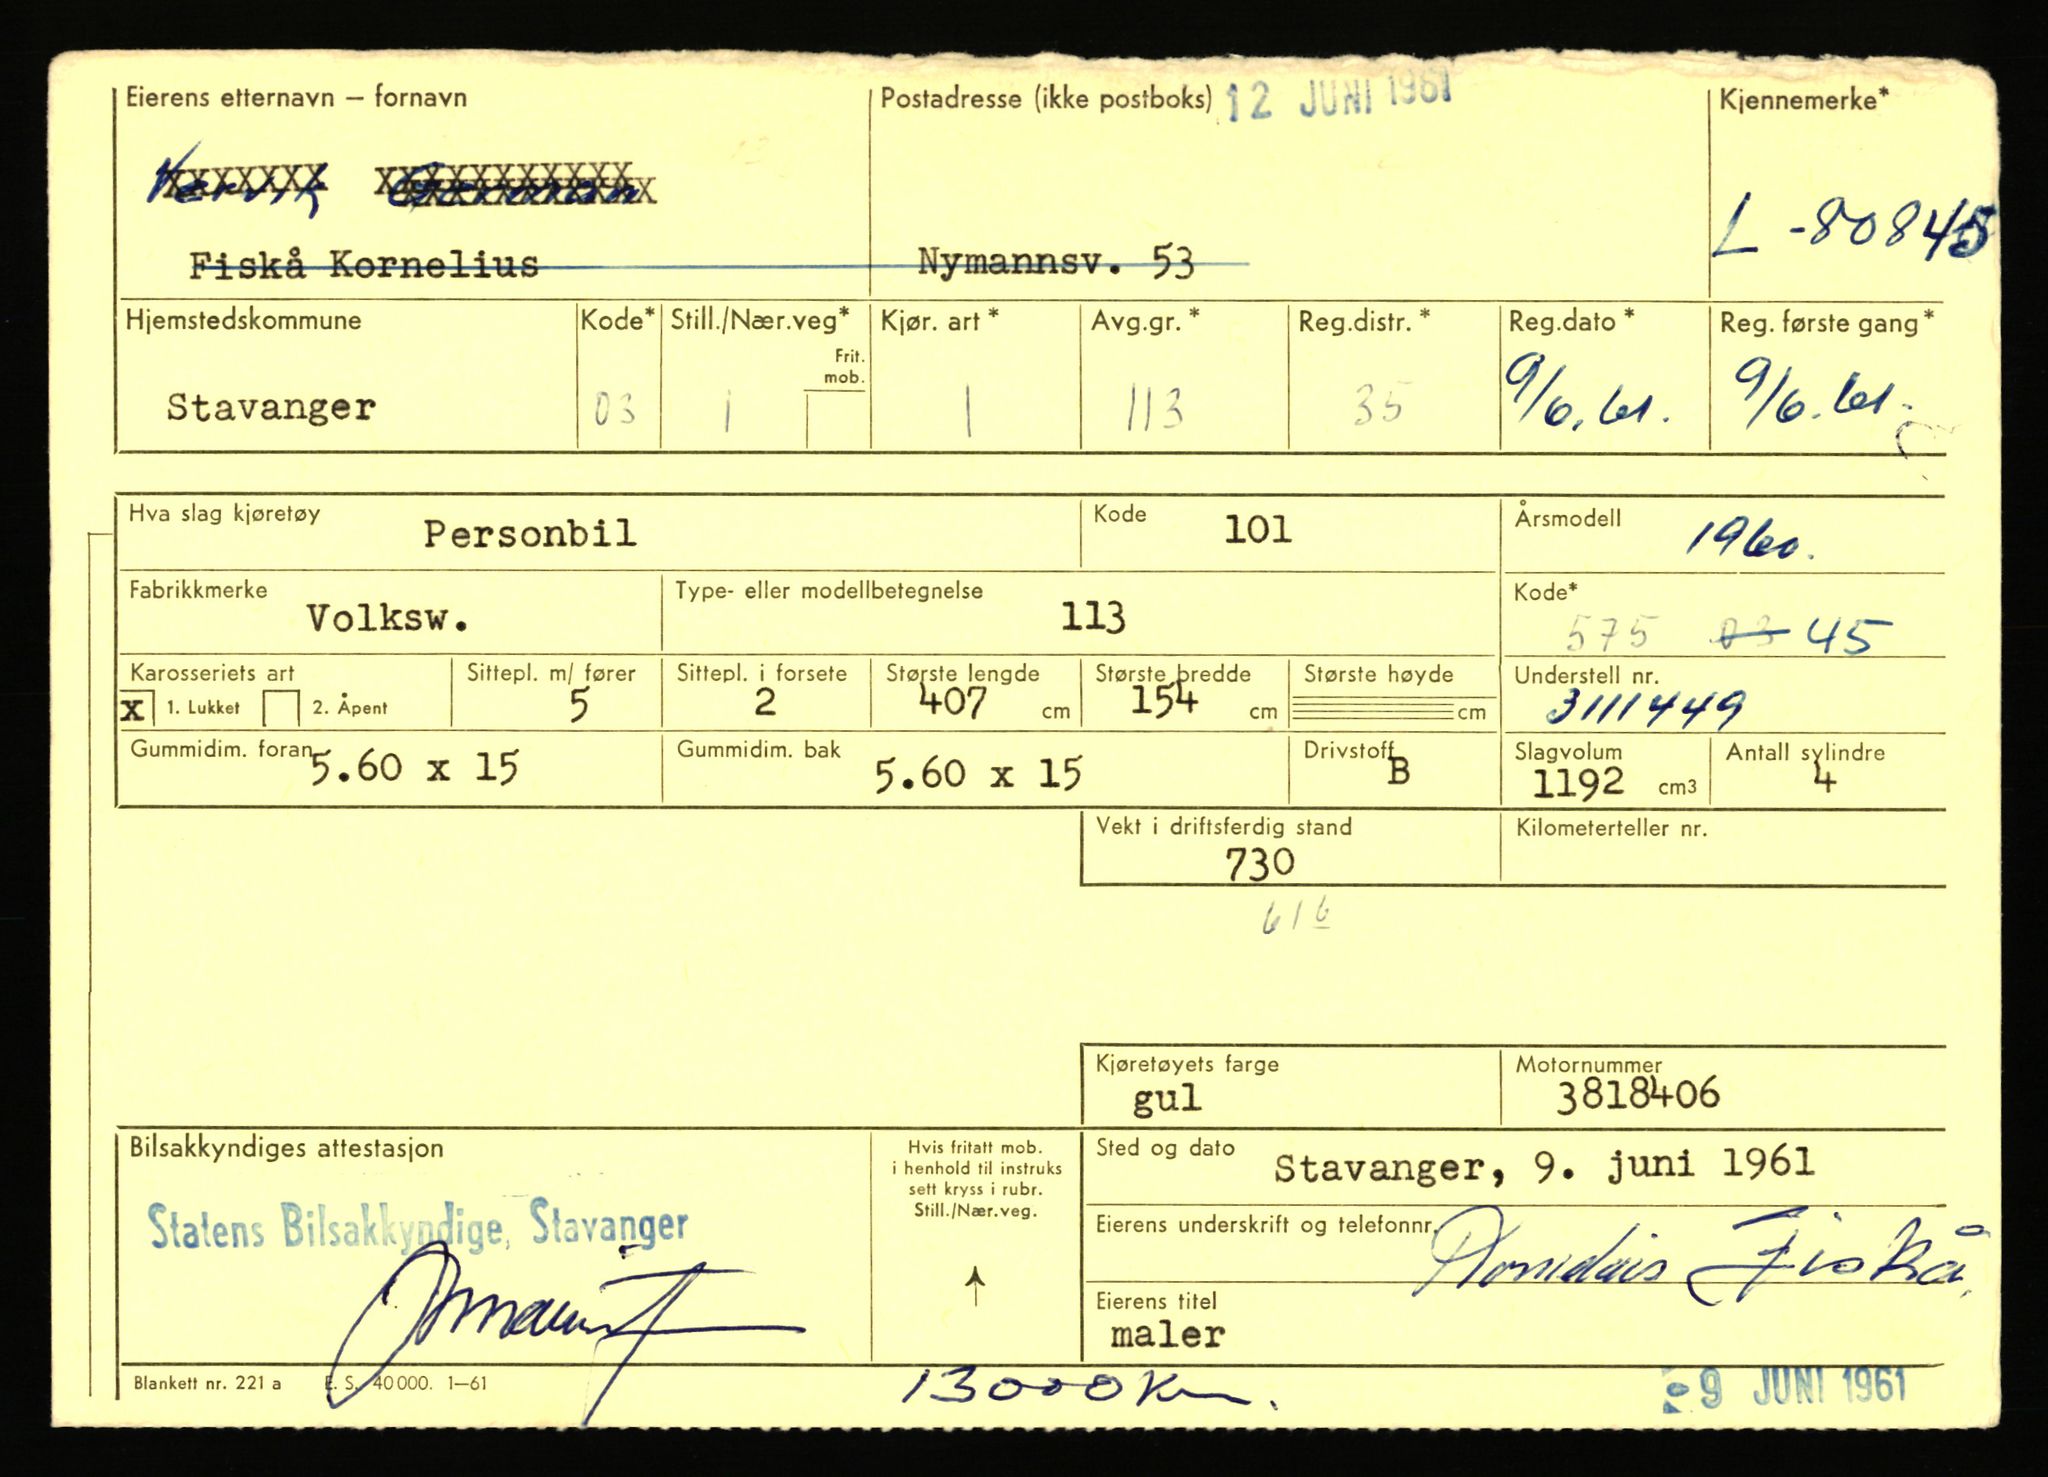 Eierens etternavn – fornavn Postadresse (ikke postboks) 12 JUNI 1961 Kjennemerke*
L-80845
Fiskå Kornelius Nymannsv. 53
Hjemstedskommune Kode* Still./Nær.veg* Kjør. art* Avg.gr.* Reg.distr.* Reg.dato* Reg. første gang*
Frit.
mob.
Stavanger 03 1 1 113 35 9/6.61. 9/6.61.
Hva slag kjøretøy Personbil Kode 101 Årsmodell 1960.
Fabrikkmerke Type- eller modellbetegnelse Kode*
Volksw. 113 575 03 45
Karosseriets art Sittepl. m/ fører Sittepl. i forsete Største lengde Største bredde Største høyde Understell nr.
x 1. Lukket 2. Åpent 5 2 407 cm 154 cm cm 3111449
Gummidim. foran Gummidim. bak Drivstoff Slagvolum Antall sylindre
5.60 x 15 5.60 x 15 B 1192 cm3 4
Vekt i driftsferdig stand Kilometerteller nr.
730
616
Kjøretøyets farge Motornummer
gul 3818406
Bilsakkyndiges attestasjon Hvis fritatt mob.
i henhold til instruks
sett kryss i rubr.
Still./Nær.veg.
Sted og dato Stavanger, 9. juni 1961
Statens Bilsakkyndige, Stavanger
Eierens underskrift og telefonnr. Fiskå
Eierens titel
maler
Blankett nr. 221 a E. S. 40 000. 1–61 13000 km. 9 JUNI 1961